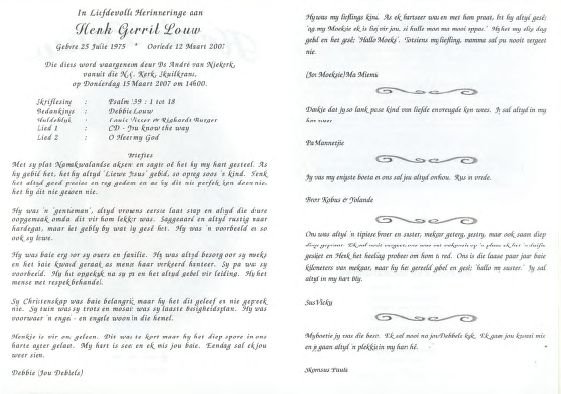 In Liefdevolle Herinneringe aan
Henk Gerrit Louw
Gebore 25 Julie 1975 * Oorlede 12 Maart 2007
Die diens word waargeneem deur Ds André van Niekerk,
vanuit die N.G. Kerk, Skuilkrans,
op Donderdag 15 Maart 2007 om 14h00.
Skriflesing : Psalm 39 : 1 tot 18
Bedankings : Debbie Louw
Huldeblyk : Louis Visser & Richardt Burger
Lied 1 : CD - You know the way
Lied 2 : O Heer my God
Briefies
Met sy plat Namakwalandse aksent en sagte oë het hy my hart gesteel. As
hy gebid het, het hy altyd 'Liewe Jesus' gebid, so opreg soos 'n kind. Henk
het altyd goed precies en reg gedoen en as hy dit nie perfek kon doen nie,
het hy dit nie gedoen nie.
Hy was 'n 'gentleman', altyd vrouens eerste laat stap en altyd die dure
oopgemaak omdat dit vir hom lekker was. Saggeaard en altyd rustig naar
hardegat, maar het gebly by wat hy gesê het. Hy was 'n voorbeeld en so
ook sy lewe.
Hy was baie erg oor sy ouers en familie. Hy was altyd besorg oor sy meeks
en het baie kwaad geraak as mense haar verkeerd hanteer. Sy pa was sy
voorbeeld. Hy het opgekyk na sy pa en het altyd gebel vir leiding. Hy het
mense met respek behandel.
Sy Christenskap was baie belangrik maar hy het dit geleef en nie gepreek
nie. Sy tuin was sy trots en mosaic was sy laaste besigheidsplan. Hy was
voorwaar 'n engel - en engele woon in die hemel.
Henkie is vir ons geleen. Dit was te kort maar hy het diep spore in ons
harte getrap gelaat. My hart is seer en ek mis jou baie. Eendag sal ek jou
weer sien.
Debbie (Jou Debbels)
Hy was my lieflings kind. As ek hartseer was en met hom praat, het hy altyd gesê;
'ag my Moekie ek is lief vir jou, si hulle mon ma mooi oppas.' Hy het my elke dag
gebel en het gesê; 'Hallo Moeks'. Totsiens my liefling, mamma sal jou nooit vergeet
nie.
(Jou Moeksie) Ma Miemu
Dankie dat jy so lank passe kind van liefde en vreugde kon wees. Jy sal altyd in my
hart wees
Pa Mannetjie
Jy was my enigste boeta en ons sal jou altyd onthou. Rus in vrede.
Broer Kobus & Yolande
Ons was altyd 'n tipiese broer en suster, mekaar geterg, gestry, maar ook saam diep
gesien en Henk het heeldag probeer om hom te red. Ons is die laaste paar jaar baie
kilometers van mekaar, maar hy het gereeld gebel en gesê; 'hallo my suster.' Jy sal
altyd in my hart bly.
Sus Vicky
My boetie jy was die beste. Ek sal mooi na jou Debbels kyk. Ek gaan jou kwaai mis
en jy gaan altyd 'n plekkie in my hart hê.
Skoonsus Paula